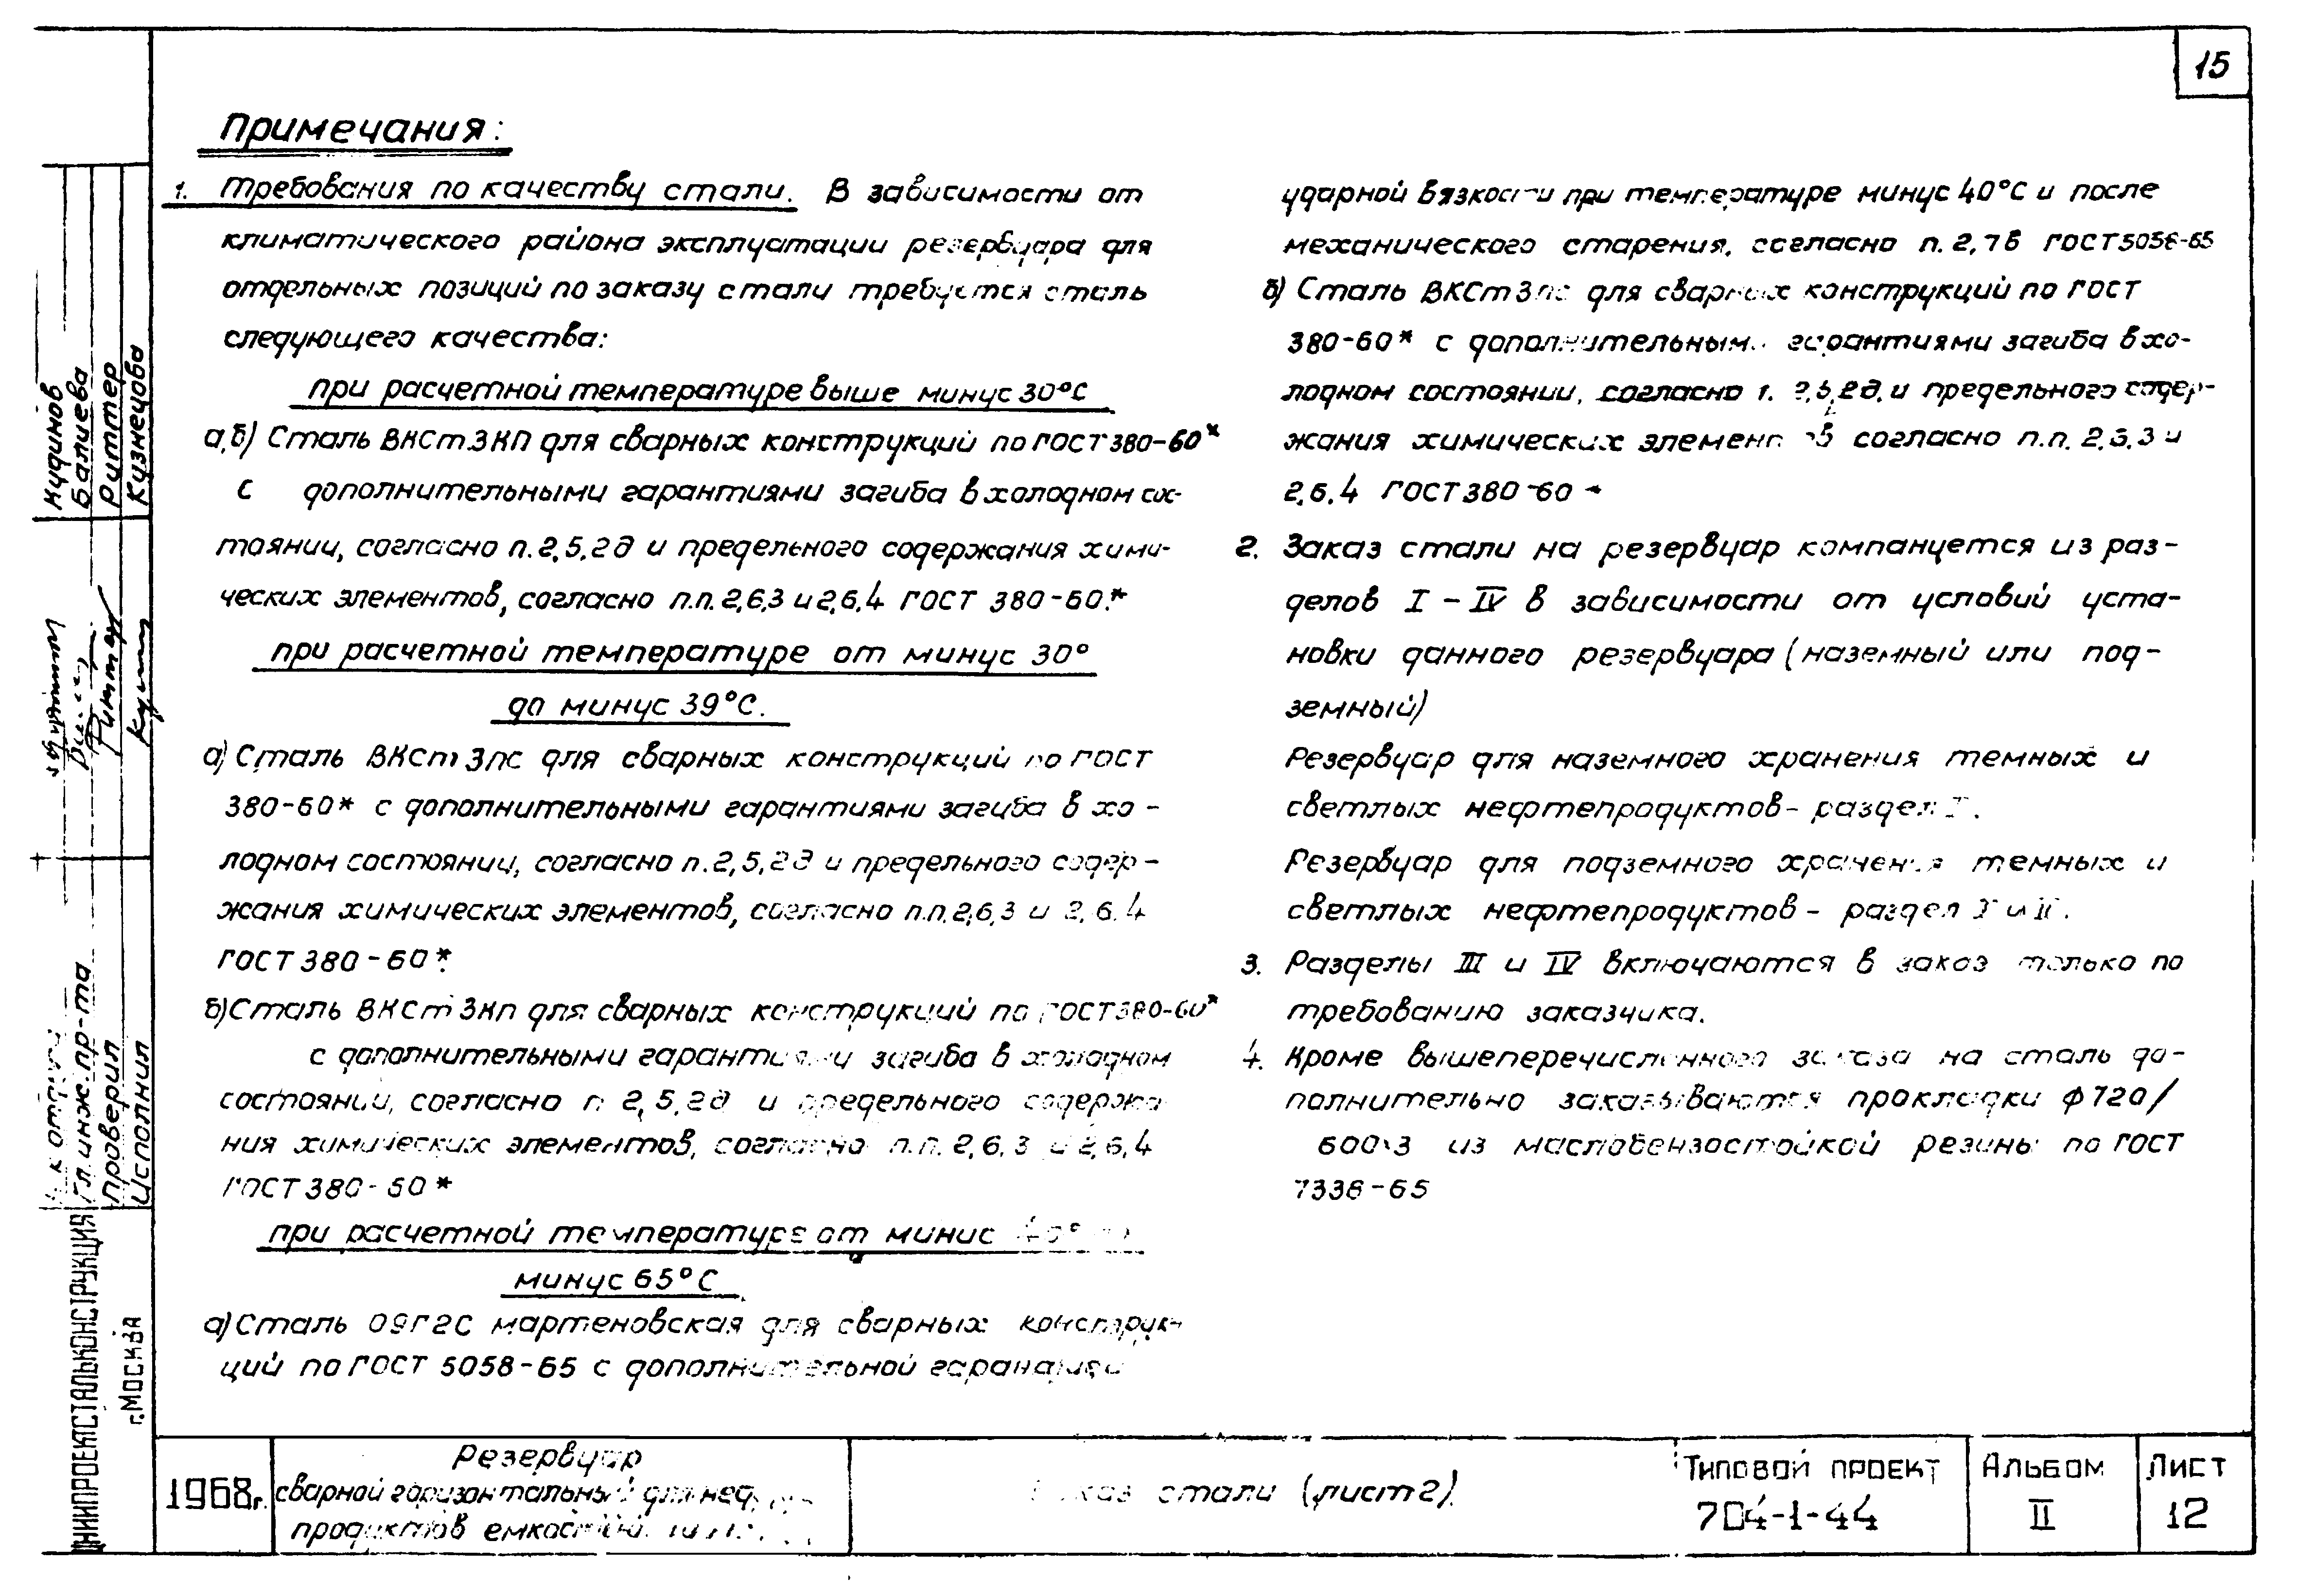 15
Примечания:
1. Требования по качеству стали. В зависимости от
климатического района эксплуатации резервуара для
отдельных позиций по заказу стали требуется сталь
следующего качества:
при расчетной температуре выше минус 30°С
а,б) Сталь ВКСт3КП для сварных конструкций по ГОСТ 380-60*
с дополнительными гарантиями загиба в холодном сос-
тоянии, согласно п.2,5,2д и предельного содержания хими-
ческих элементов, согласно п.п. 2,6,3 и 2,6,4 ГОСТ 380-60.*
при расчетной температуре от минус 30°
до минус 39°С.
а) Сталь ВКСт3пс для сварных конструкций по ГОСТ
380-60* с дополнительными гарантиями загиба в хо-
лодном состоянии, согласно п.2,5,2д и предельного содер-
жания химических элементов, согласно п.п.2,6,3 и 2,6.4
ГОСТ 380-60*.
б) Сталь ВКСт3кп для сварных конструкций по ГОСТ380-60*
с дополнительными гарантиями загиба в холодном
состоянии, согласно п 2,5,2д и предельного содержа
ния химических элементов, согласно п.п. 2,6,3 и 2,6,4
ГОСТ 380-60*
при расчетной температуре от минус 40°
минус 65°С
а) Сталь 09Г2С мартеновская для сварных конструк-
ций по ГОСТ 5058-65 с дополнительной гарантией
ударной вязкости при температуре минус 40°С и после
механического старения, согласно п. 2,7в ГОСТ5058-65
б) Сталь ВКСт3пс для сварных конструкций по ГОСТ
380-60* с дополнительными гарантиями загиба в хо-
лодном состоянии, согласно п. 2,5,2д, и предельного содер-
жания химических элементов согласно п.п. 2,6.3 и
2,6.4 ГОСТ 380-60*
2. Заказ стали на резервуар компануется из раз-
делов I - IV в зависимости от условий уста-
новки данного резервуара (наземный или под-
земный)
Резервуар для наземного хранения темных и
светлых нефтепродуктов - раздел I.
Резервуар для подземного хранения темных и
светлых нефтепродуктов - раздел I и II.
3. Разделы III и IV включаются в заказ только по
требованию заказчика.
4. Кроме вышеперечисленного заказа на сталь до-
полнительно заказываются прокладки ф720/
600×3 из маслобензостойкой резины по ГОСТ
7338-65
Кудинов
Балиева
Риттер
Кузнецова
отдела
гл.инж.пр-та
проверил
Исполнил
ЦНИИПРОЕКТСТАЛЬКОНСТРУКЦИЯ
г.Москва
1968г.
Резервуар
сварной горизонтальный для неф
продуктов емкостью
Заказ стали (лист 2)
Типовой проект
704-1-44
Альбом
II
Лист
12